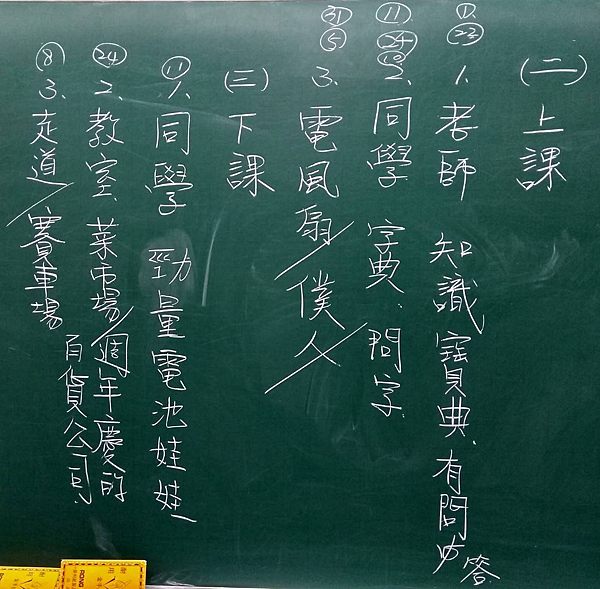 (二)上課
① ㉓ 1.老師 知識寶典、有問必答
⑪ ㉔ 2.同學 字典、問字
㉛ ⑤ 3.電風扇/僕人/
(三)下課
⑪ 1.同學 勁量電池娃娃
㉔ 2.教室、菜市場/週年慶的
百貨公司
⑧ 3.走道/賽車場